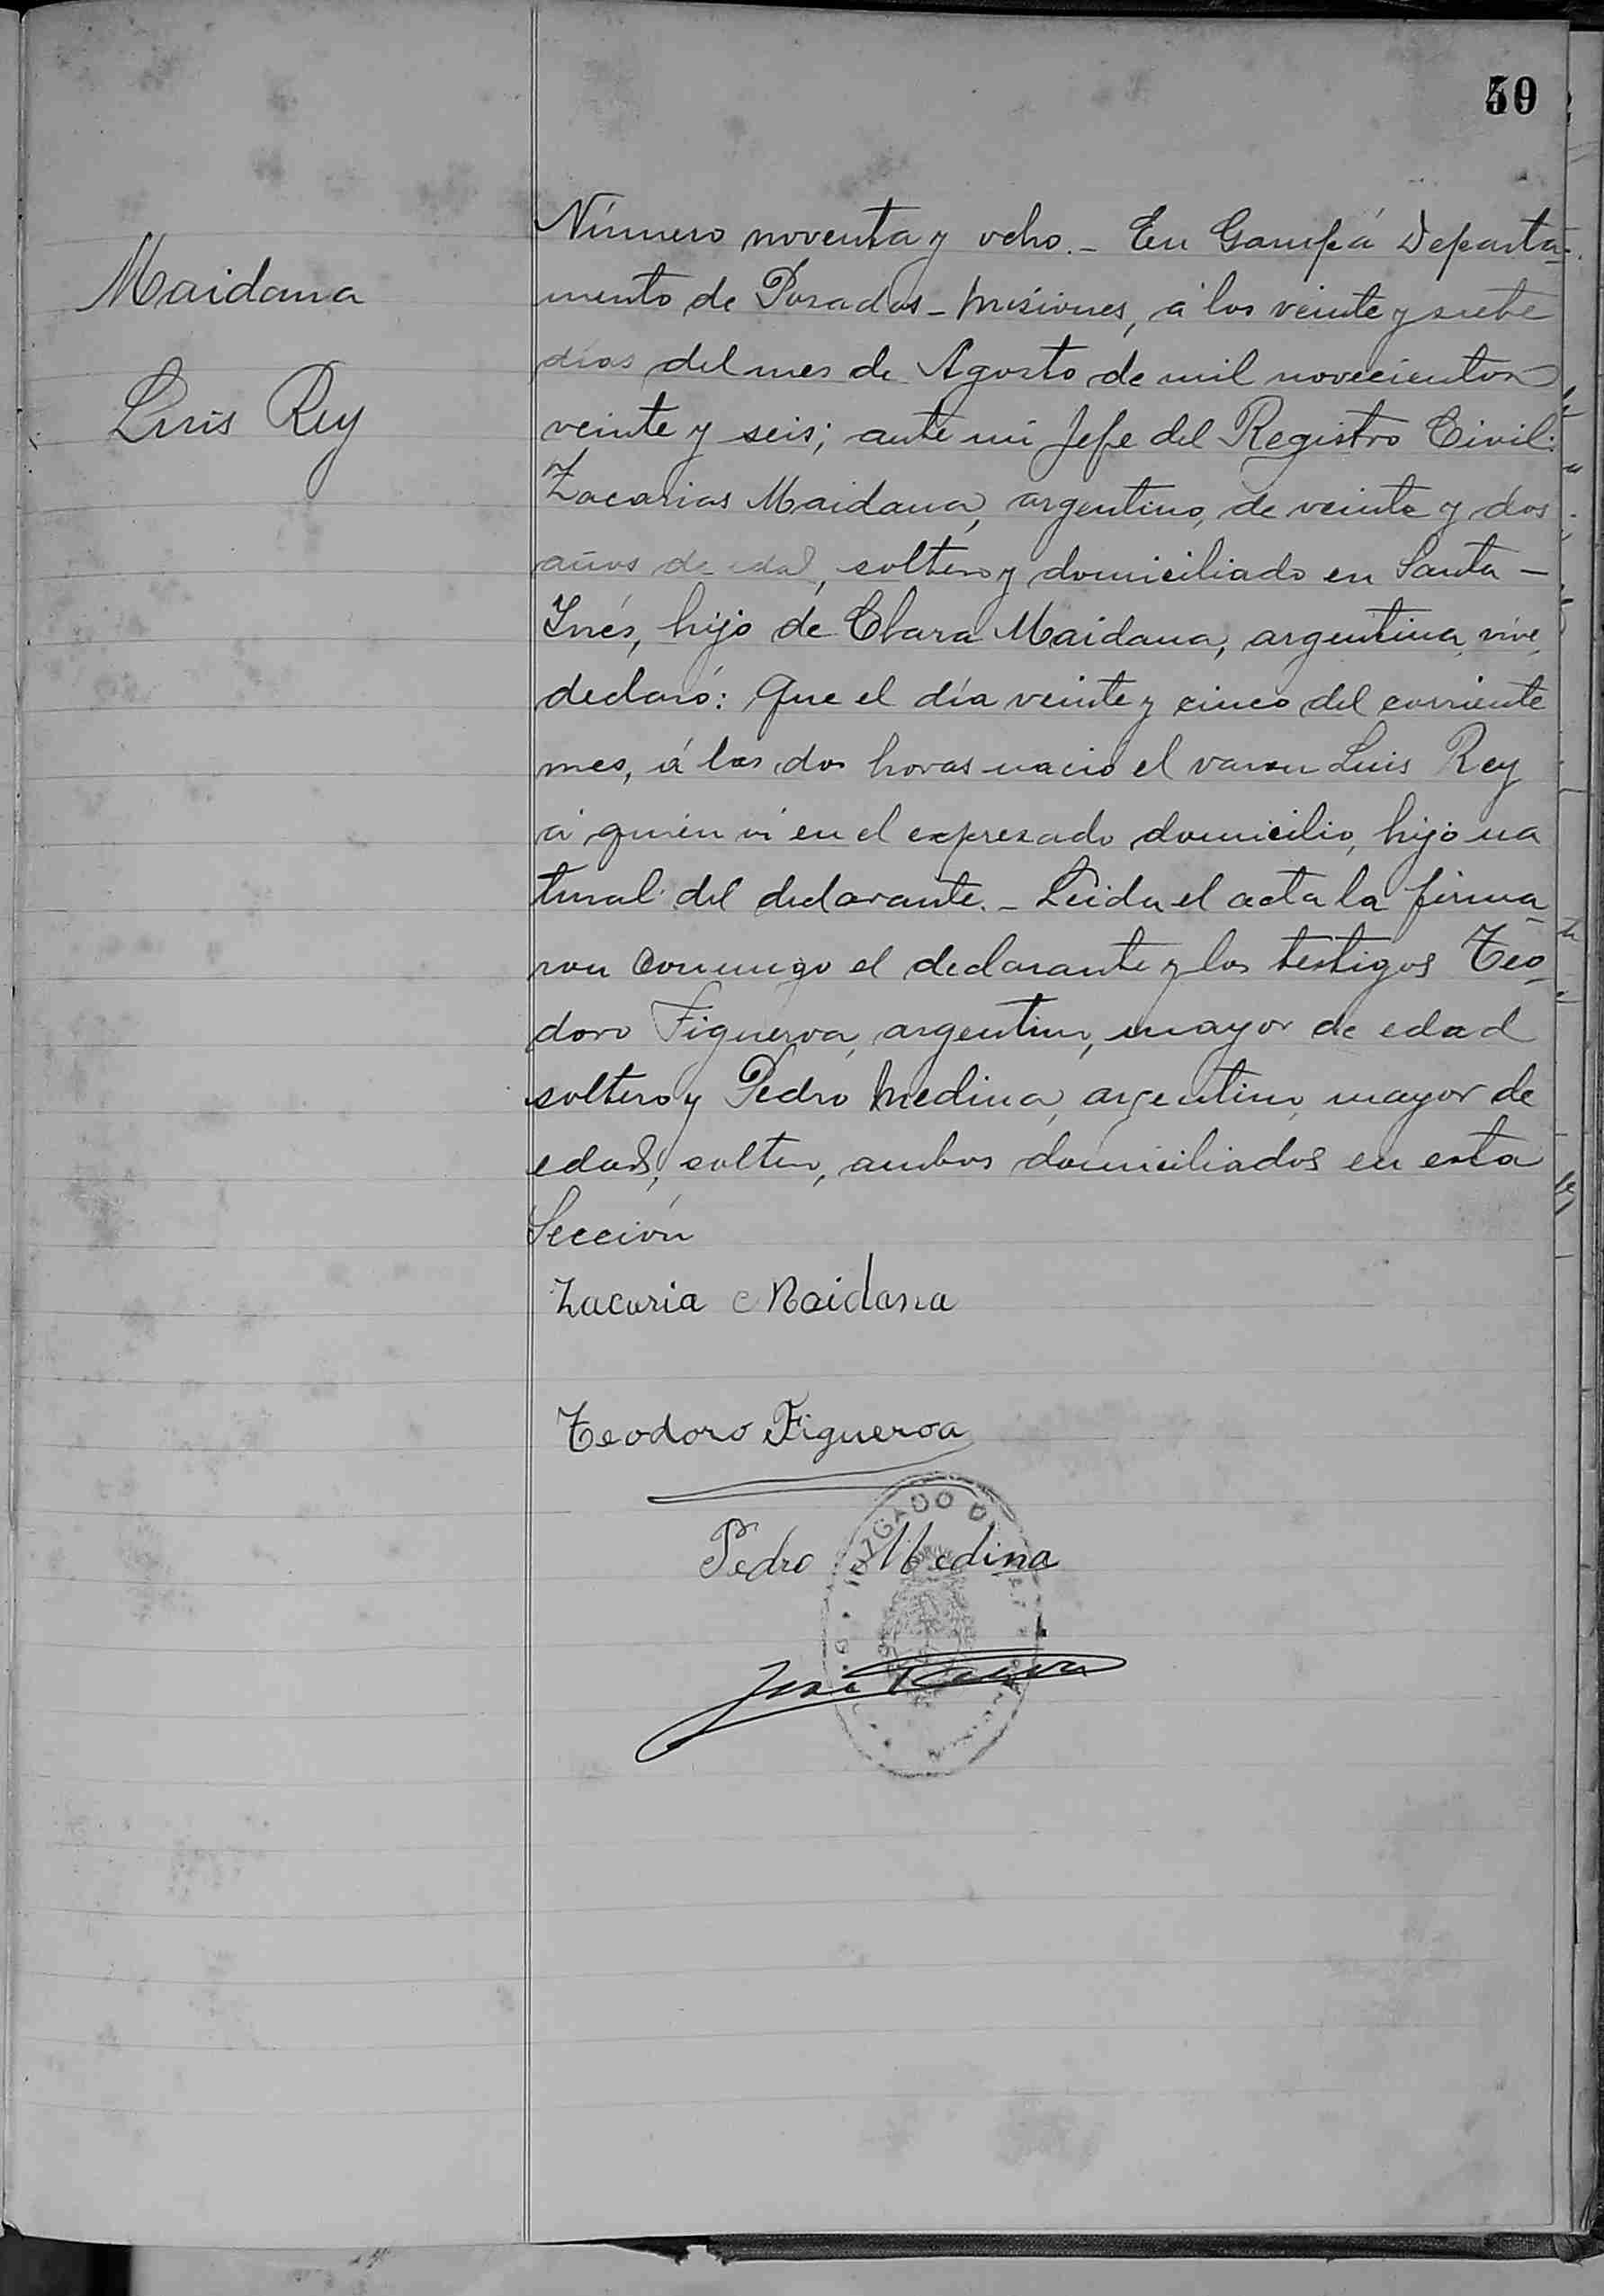 50
Maidana
Luis Rey
Número noventa y ocho.- En Garupá Departa-
mento de Posadas - Misiones, á los veinte y siete
días del mes de Agosto de mil novecientos
veinte y seis; ante mi Jefe del Registro Civil:
Zacarias Maidana, argentino, de veinte y dos
años de edad, soltero y domiciliado en Santa -
Inés, hijo de Clara Maidana, argentina, vive,
declaró: Que el día veinte y cinco del corriente
mes, á las dos horas nació el varon Luis Rey
á quién ví en el expresado domicilio, hijo na
tural del declarante.- Leida el acta la firma-
ron conmigo el declarante y los testigos Teo-
doro Figueroa, argentino, mayor de edad
soltero y Pedro Medina, argentino, mayor de
edad, soltero, ambos domiciliados en esta
Sección
Zacaria Maidana
Teodoro Figueroa
Pedro Medina
JUZGADO D
José